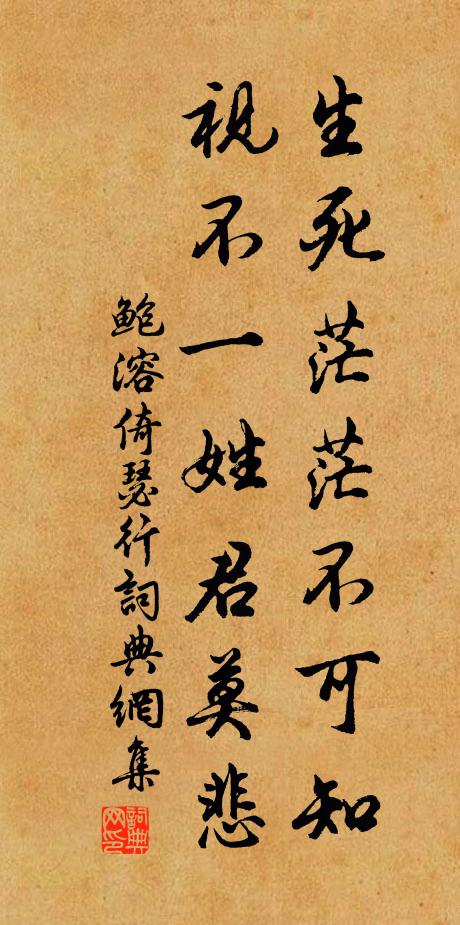 生死茫茫不可知
視不一姓君莫悲
鲍溶倚瑟行詞典網集
詞典
网印